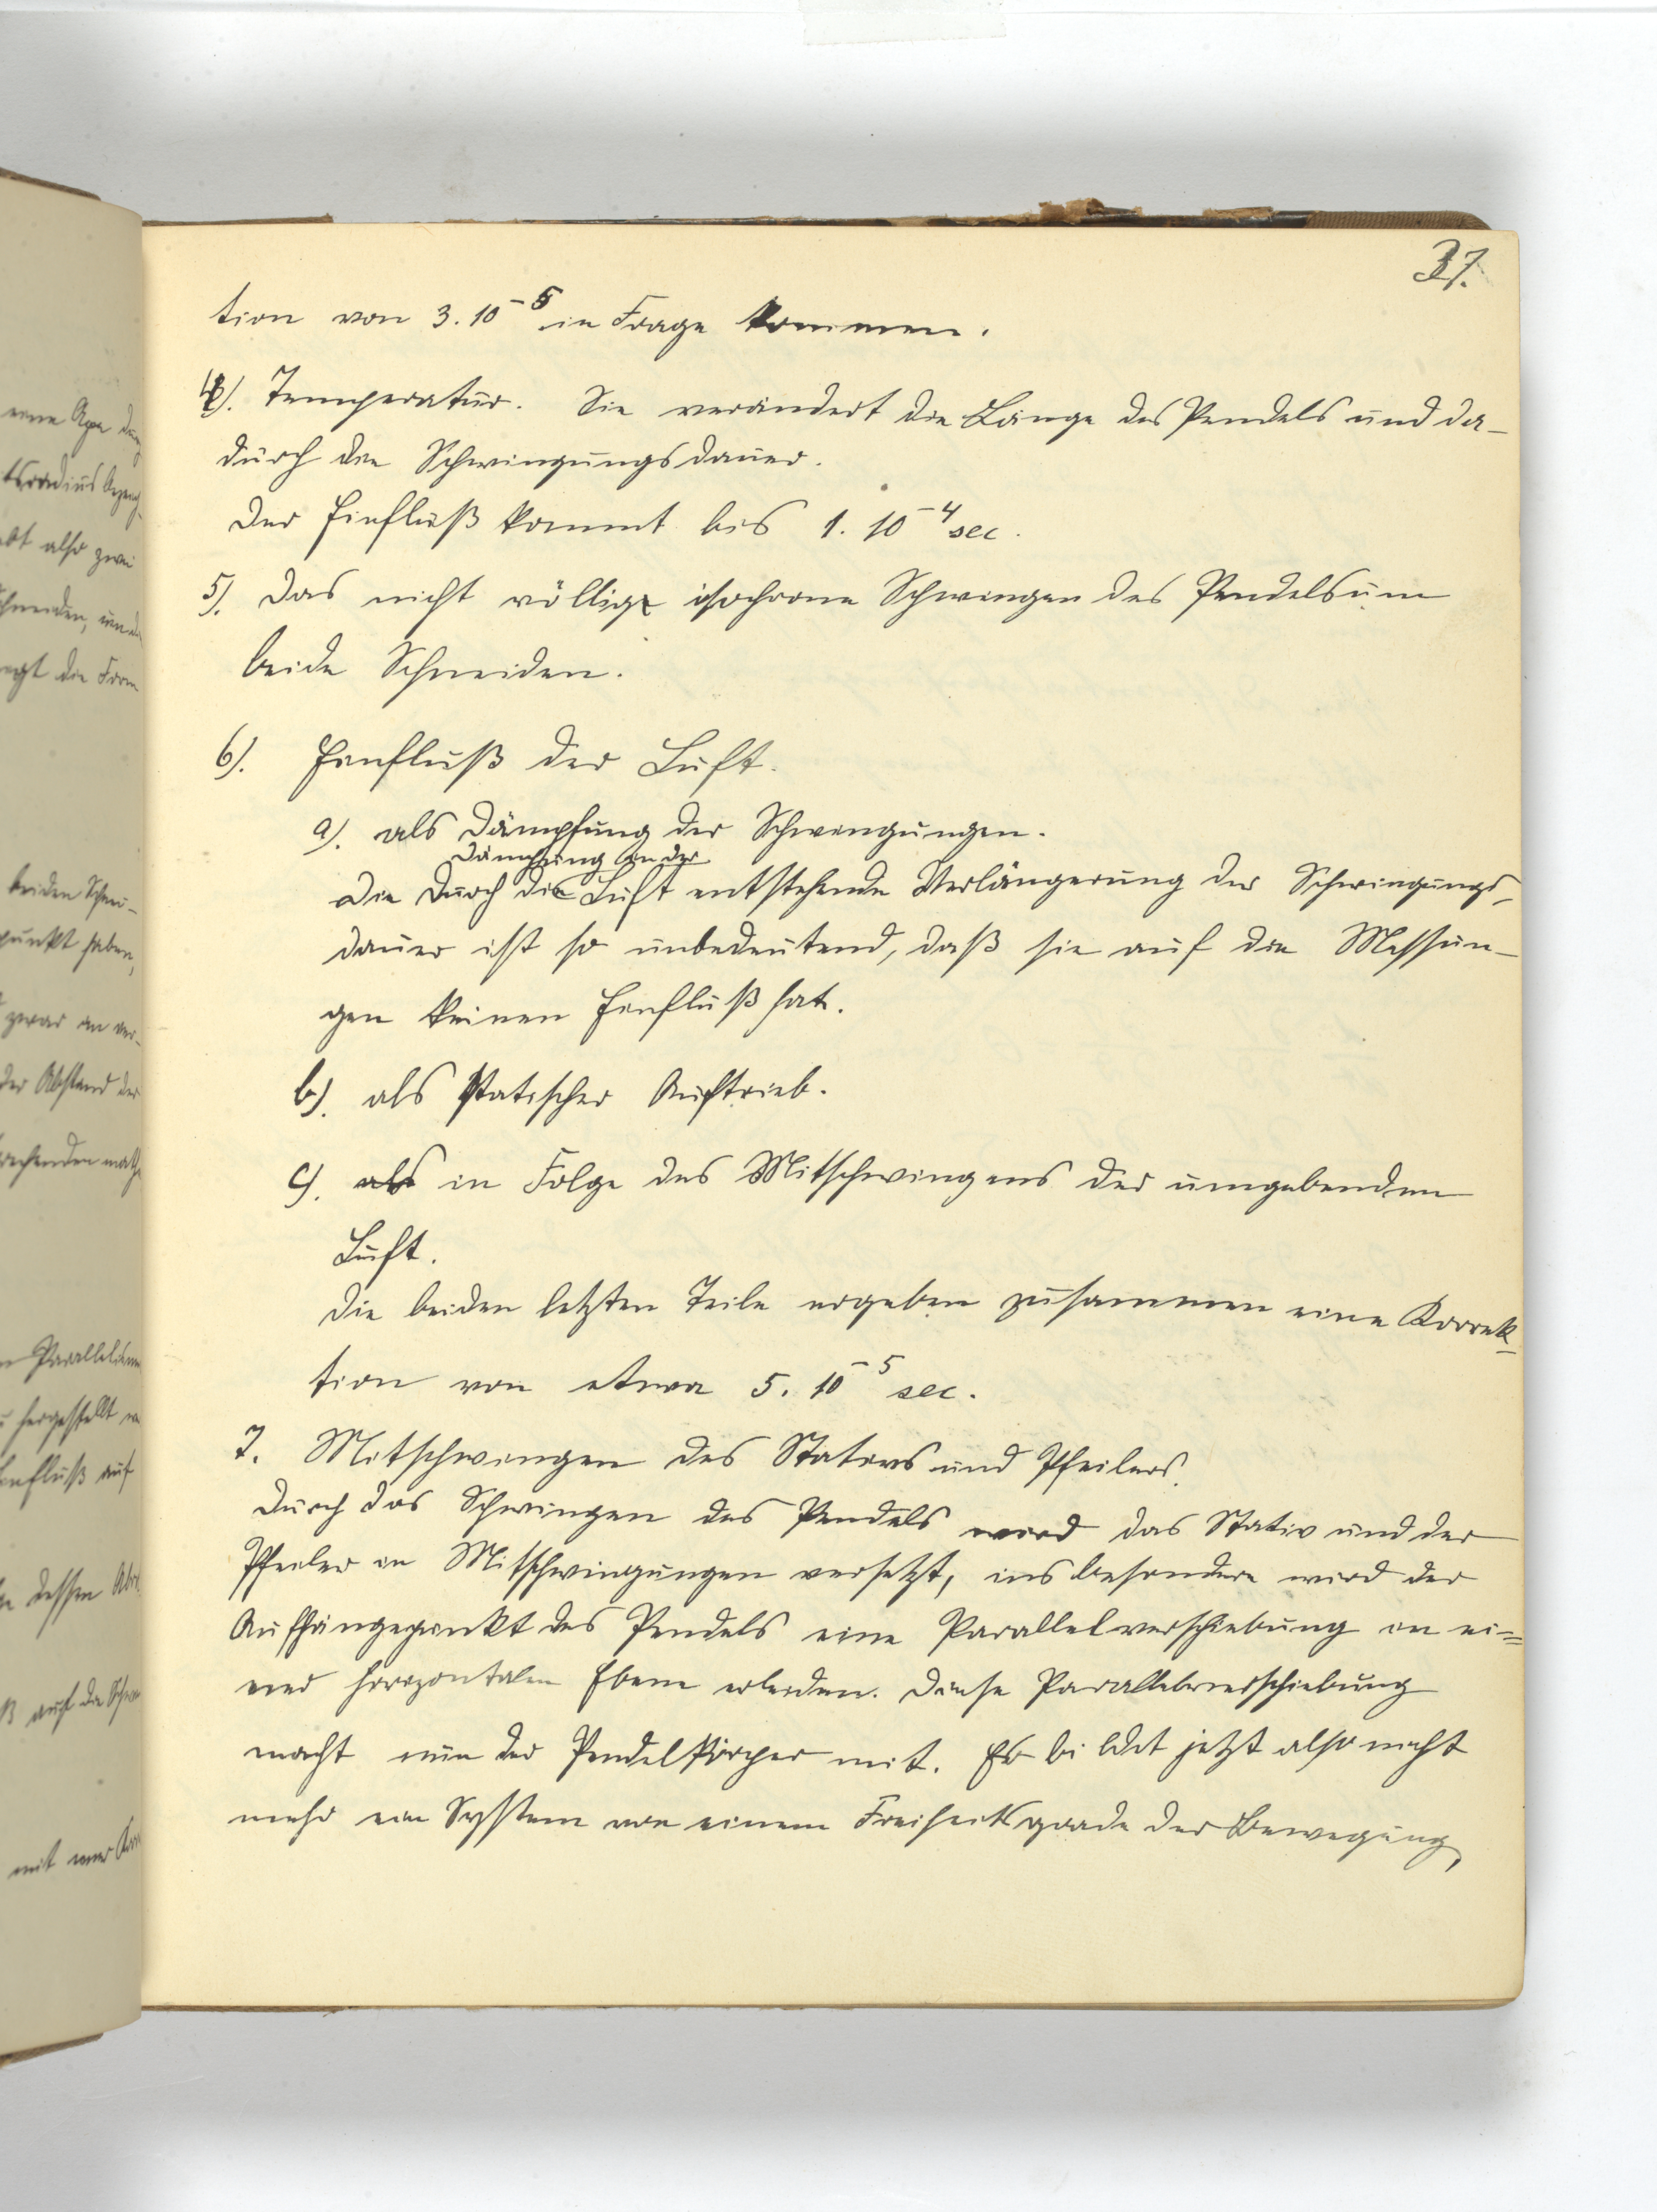 37.
tion von 3. 10⁻⁵ in Frage kommen.
4). Temperatur. Sie verändert die Länge des Pendels und da-
durch die Schwingungsdauer.
Der Einfluß kommt bis 1. 10⁻⁴ sec.
5). Das nicht völlige isochrone Schwingen des Pendels um
beide Schneiden.
6). Einfluß der Luft.
a). als Dämpfung der Schwingungen.
Dämpfung in der
Die durch die Luft entstehende Verlängerung der Schwingungs-
dauer ist so unbedeutend, daß sie auf die Messun-
gen keinen Einfluß hat.
b). als statischer Auftrieb.
c). als in Folge des Mitschwingens der umgebenden
Luft.
Die beiden letzten Teile ergeben zusammen eine Korrek-
tion von etwa 5. 10⁻⁵ sec.
7. Mitschwingen des Stativs und Pfeilers.
Durch das Schwingen des Pendels wird das Stativ und der
Pfeiler in Mitschwingungen versetzt, ins besondere wird der
Aufhängepunkt des Pendels eine Parallelverschiebung in ei=
ner horizontalen Ebene erleiden. Diese Parallelverschiebung
macht nun der Pendelkörper mit. Er bildet jetzt also nicht
mehr ein System von einem Freiheitsgrade der Bewegung,
eine
also zwei
die Form
beiden Schnei-
punkt haben,
zwar in ver-
der Abstand der
hergestellt
Einfluß auf
dessen
auf die
mit einer